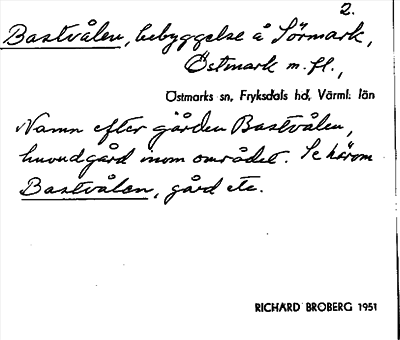 2.
Bastvålen, bebyggelse å Sörmark,
Östmark m.fl.,
Östmarks sn, Fryksdals hd, Värml. län
Namn efter gården Bastvålen,
huvudgård inom området. Se härom
Bastvålen, gård etc.
RICHARD BROBERG 1951